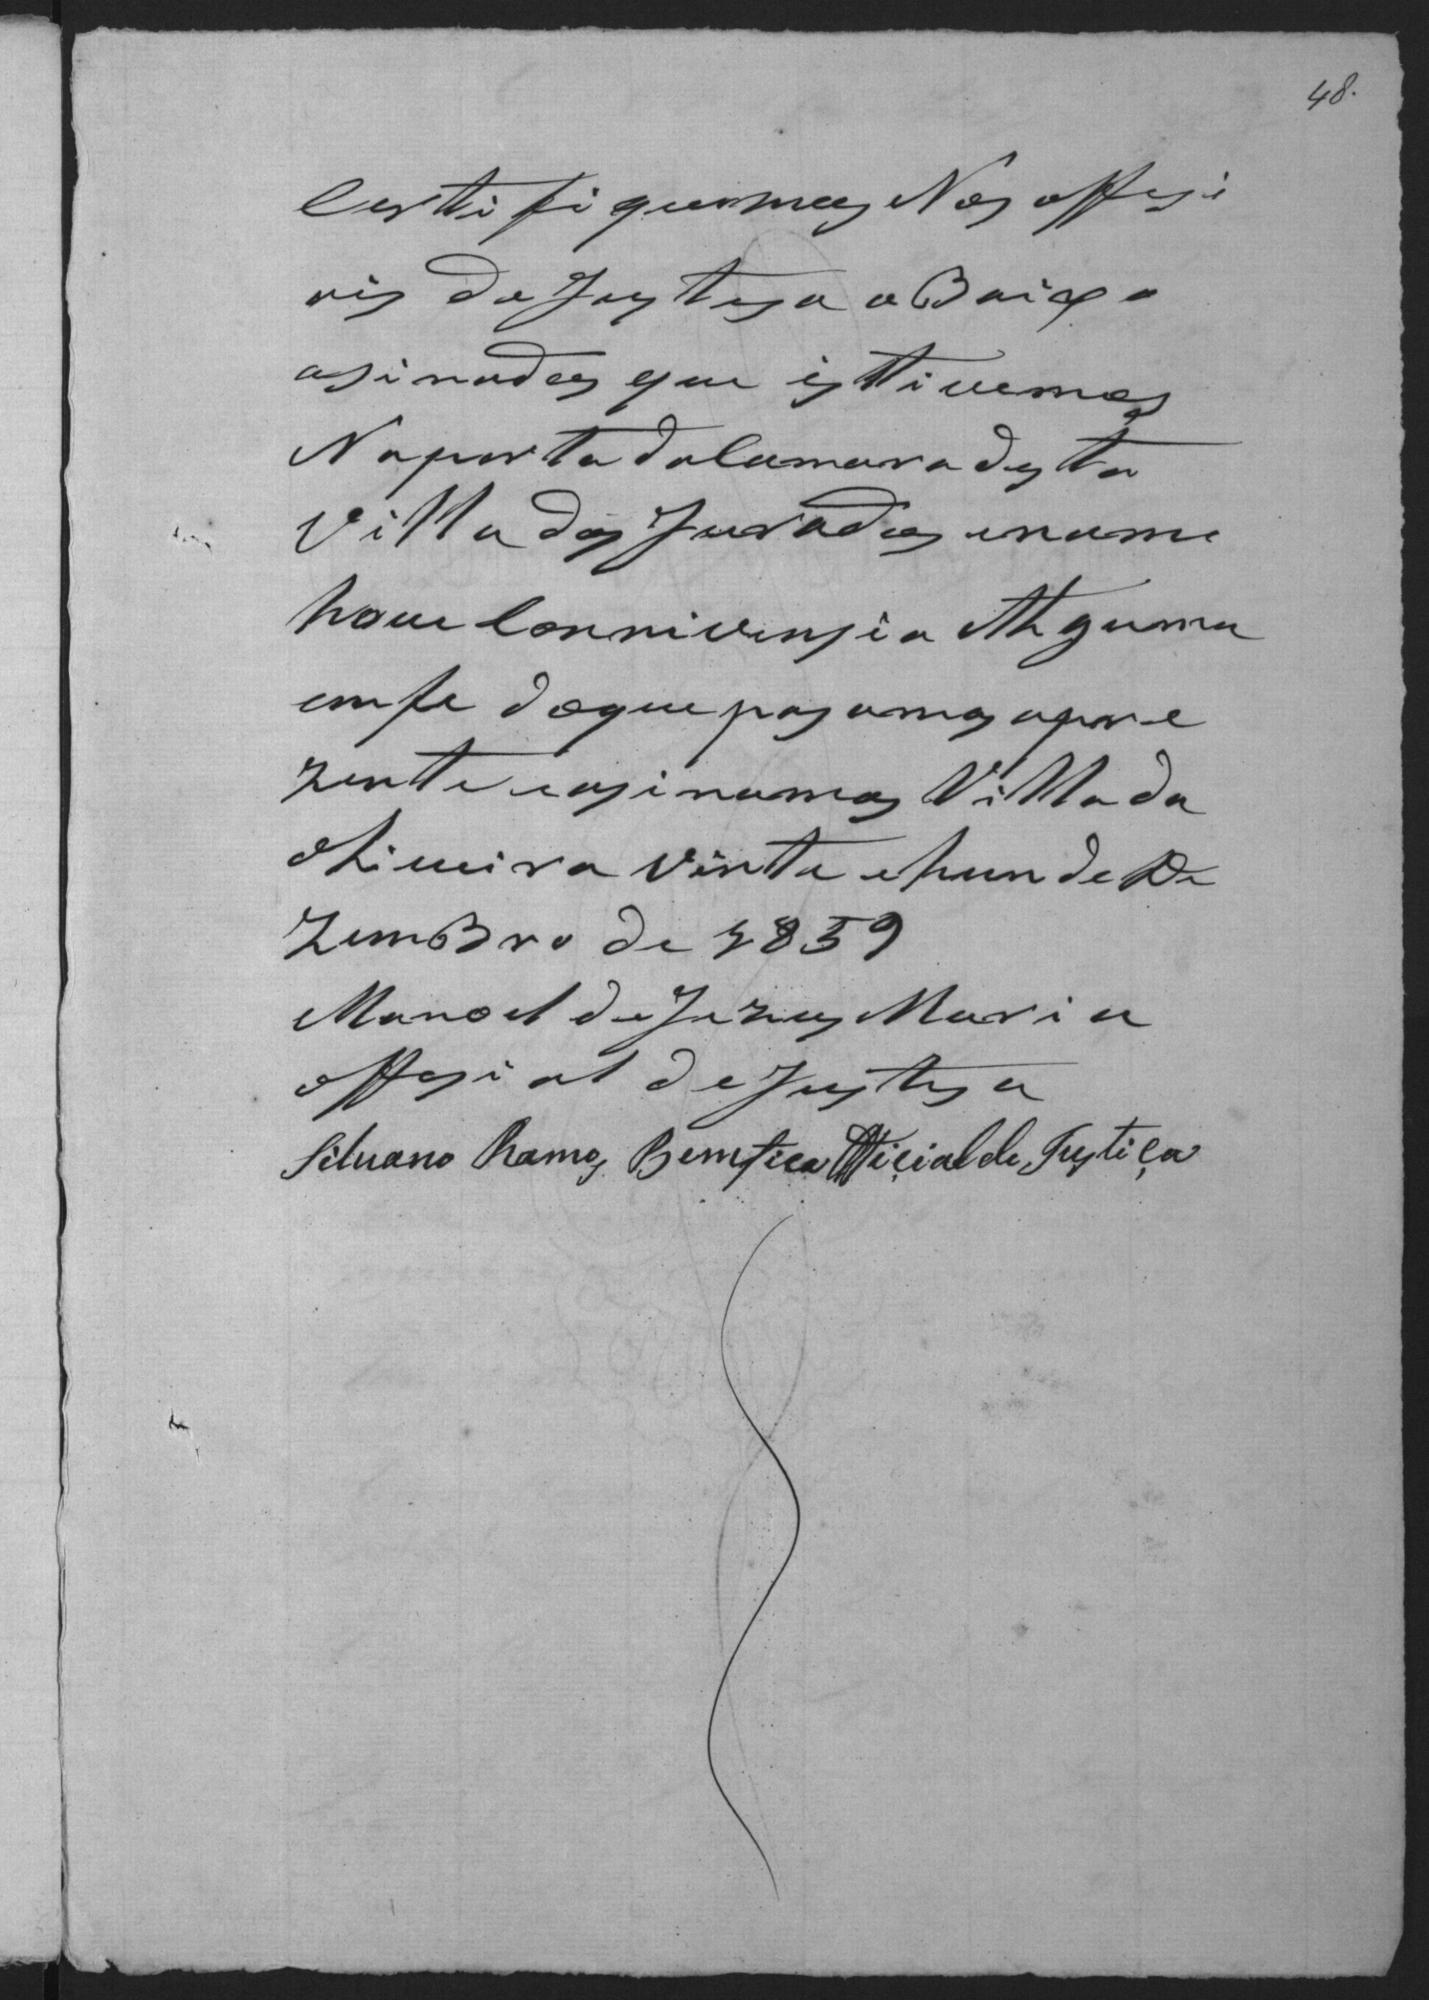 48.
Certifiquemos Nos offesi
ais de Justesa a Baixo
asinados que isttivemos
Na porta da Camara desta
Villa dos Jurados e name
hove Connivensia Alguma
em fe do que pasamos apre
zente e asinamos Villa da
Oliveira vinte e hun de De
zemBro de 1859
Manoel de Jezus Maria
offesial de Justesa
Silvano Ramos Bemfica Official de Justiça